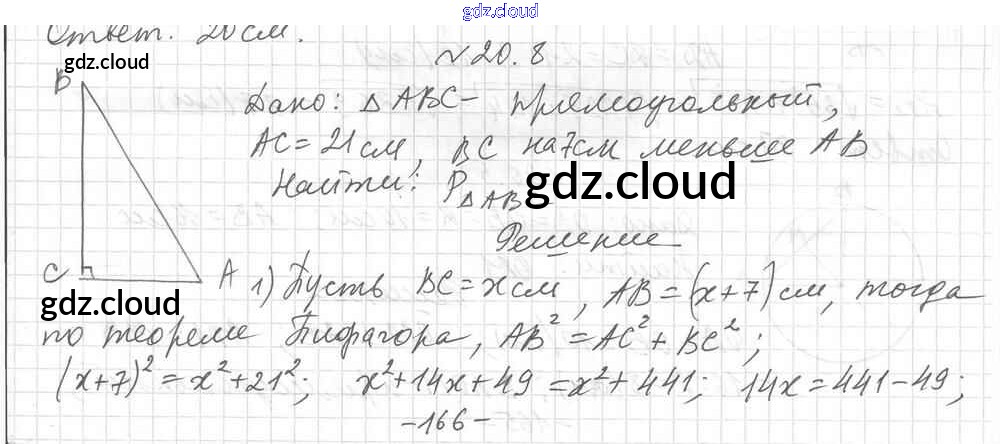 gdz.cloud
Ответ. 20 см.
gdz.cloud
№ 20.8
B
Дано: △ABC - прямоугольный,
AC = 21 см, BC на 7 см меньше AB
Найти: P△AB
gdz.cloud
Решение
C A
gdz.cloud
1) Пусть BC = x см, AB = (x+7) см, тогда
по теореме Пифагора, AB² = AC² + BC²;
(x+7)² = x² + 21²; x² + 14x + 49 = x² + 441; 14x = 441 - 49;
-166-